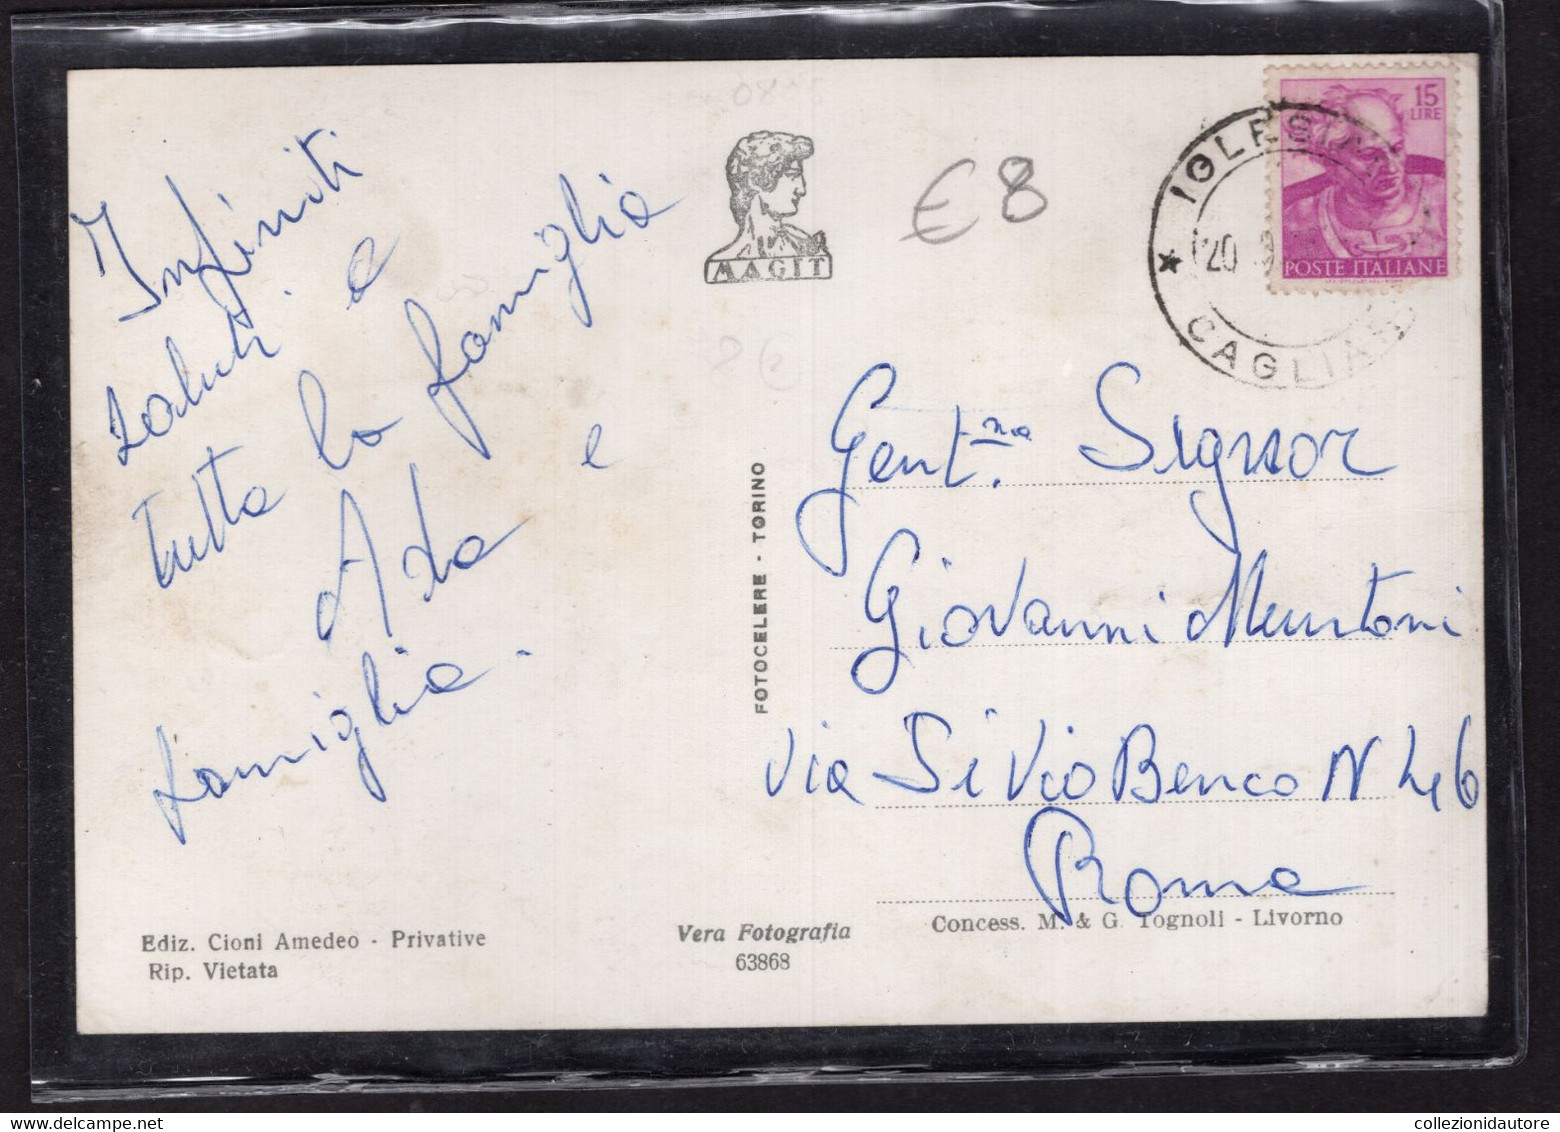 Infiniti
saluti a
tutta la famiglia
Ada e
famiglia.
MAGIT
€ 8
2 €
15
LIRE
POSTE ITALIANE
IGLESIAS
20
CAGLIARI
Gent.mo Signor
Giovanni Muntoni
Via Silvio Benco N 46
Roma
FOTOCELERE - TORINO
Ediz. Cioni Amedeo - Privative
Rip. Vietata
Vera Fotografia
63868
Concess. M. & G. Tognoli - Livorno
collezionidautore